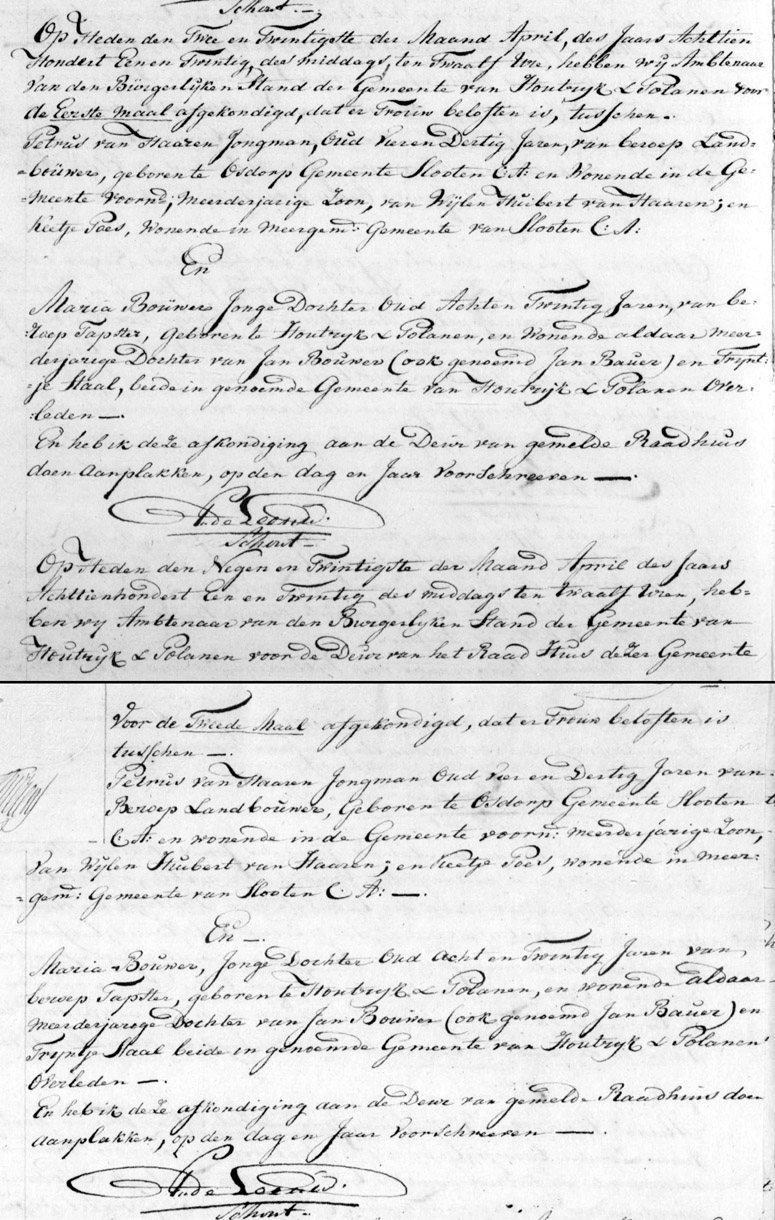 Schout.
Op Heden den Twee en Twintigste der Maand April, des Jaars Achttien
Hondert Een en Twintig, des middags, ten Twaalf Ure, hebben wij Ambtenaar
van den Burgerlijken Stand der Gemeente van Houtryk & Polanen voor
de Eerste maal afgekondigd, dat er Trouw beloften is, tusschen.
Petrus van Haaren Jongman, Oud Vier en Dertig Jaren, van beroep Land-
-bouwer, geboren te Osdorp Gemeente Slooten C. A: en Wonende in de Ge-
-meente Voorn:; meerderjarige Zoon, van Wijlen Huibert van Haaren; en
Keetje Poes, Wonende in meergem: Gemeente van Slooten C: A:
En
Maria Bouwer Jonge Dochter Oud Acht en Twintig Jaren, van be-
:roep Tapster, Geboren te Houtryk & Polanen, en Wonende aldaar meer-
derjarige Dochter van Jan Bouwer (ook genoemd Jan Bauer) en Trynt:
:je Staal, beide in genoemde Gemeente van Houtryk & Polanen Over:
:leden —.
En heb ik deze afkondiging aan de Deur van gemelde Raadhuis
doen Aanplakken, op den dag en Jaar voorschreeven —.
A. de Leeuw.
Schout
Op Heden den Negen en Twintigste der Maand April des Jaars
Achttienhondert Een en Twintig des middags ten twaalf Uren, heb-
ben wy Ambtenaar van den Burgerlyken Stand der Gemeente van
Houtryk & Polanen voor de Deur van het Raad Huis dezer Gemeente
Voor de Tweede Maal afgekondigd, dat er Trouw beloften is
tusschen —.
Petrus van Haaren Jongman Oud vier en Dertig Jaren van
Beroep Landbouwer, Geboren te Osdorp Gemeente Slooten
C. A: en wonende in de Gemeente voorn: meerderjarige Zoon,
van Wijlen Huibert van Haaren; en Keetje Poes, wonende in meer:
gem: Gemeente van Slooten C. A: —.
En —.
Maria Bouwer, Jonge Dochter Oud Acht en Twintig Jaren van
beroep Tapster, geboren te Houtryk & Polanen, en wonende aldaar
meerderjarege Dochter van Jan Bouwer (ook genoemd Jan Bauer) en
Tryntje Staal beide in genoemde Gemeente van Houtryk & Polanen
Overleden —.
En heb ik deze afkondiging aan de Deur van gemelde Raadhuis doen
aanplakken, op den dag en Jaar voorschreeven —.
A. de Leeuw.
Schout.